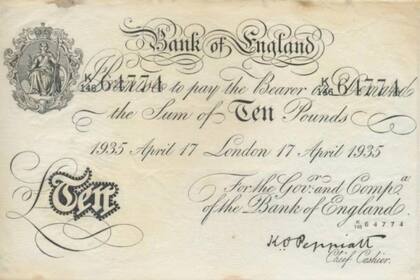 Bank of England
Promise to pay the Bearer on Demand
K/146 64774 K/146 64774
the Sum of Ten Pounds
1935 April 17 London 17 April 1935
For the Govr. and Compa.
£Ten
of the Bank of England
K/146 64774
K.O. Peppiatt
Chief Cashier.